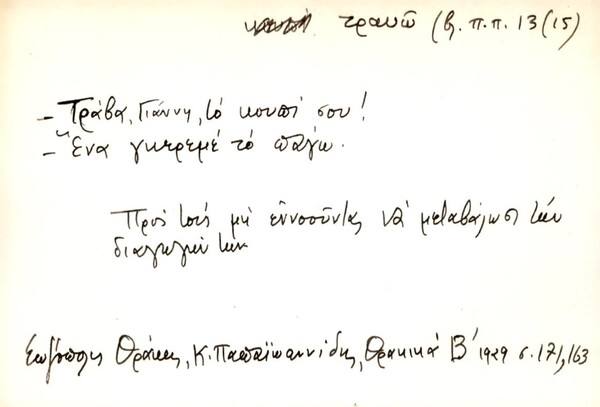 τραυῶ (β. π.π. 13 (15)
– Τράβα, Γιάννη, τό κουπί σου!
– Ἕνα γκρεμέ τό παγω.
Πρός τούς μή ἐννοοῦντας νά μεταβάλωσι τήν
διαγωγήν των
Σωζόπολις Θράκης, Κ. Παπαϊωαννίδης, Θρακικά Β΄ 1929 σ. 171, 163